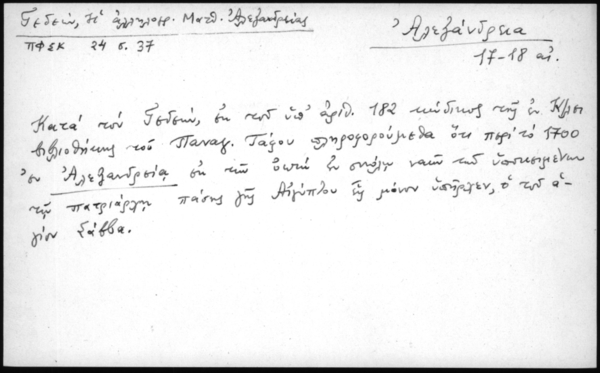 Γεδεών, Ἡ ἀλληλογρ. Ματθ. Ἀλεξανδρείας
ΠΦΣΚ 24 σ. 37
Ἀλεξάνδρεια
17-18 αἰ.
Κατά τόν Γεδεών, ἐκ τοῦ ὑπ' ἀριθ. 182 κώδικος τῆς ἐν Κ/λει
βιβλιοθήκης τοῦ Παναγ. Τάφου πληροφορούμεθα ὅτι περί τό 1700
ἐν Ἀλεξανδρείᾳ ἐκ τῶν ὀκτώ ἐν ναῶν τῶν ὑποκειμένων
τῷ πατριάρχῃ πάσης γῆς Αἰγύπτου εἷς μόνον ὑπῆρχεν, ὁ τοῦ ἁ-
γίου Σάββα.